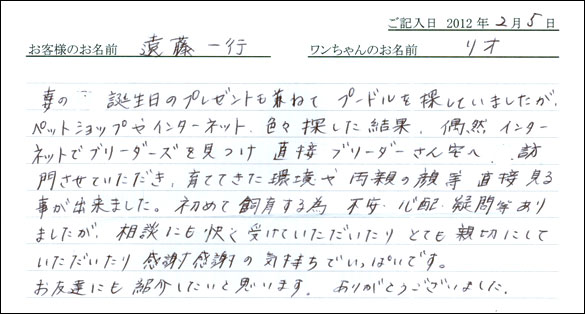 ご記入日 2012年2月5日
お客様のお名前 遠藤一行 ワンちゃんのお名前 リオ
妻の 誕生日のプレゼントも兼ねて プードルを探していましたが、
ペットショップやインターネット、色々探した結果、偶然 インター
ネットでブリーダーズを見つけ 直接 ブリーダーさん宅へ、訪
問させていただき、育ててきた環境や 両親の顔等 直接見る
事が出来ました。初めて飼育する為 不安・心配・疑問等あり
ましたが、相談にも快く受けていただいたり とても親切にして
いただいたり 感謝感謝の気持ちでいっぱいです。
お友達にも紹介したいと思います。ありがとうございました。